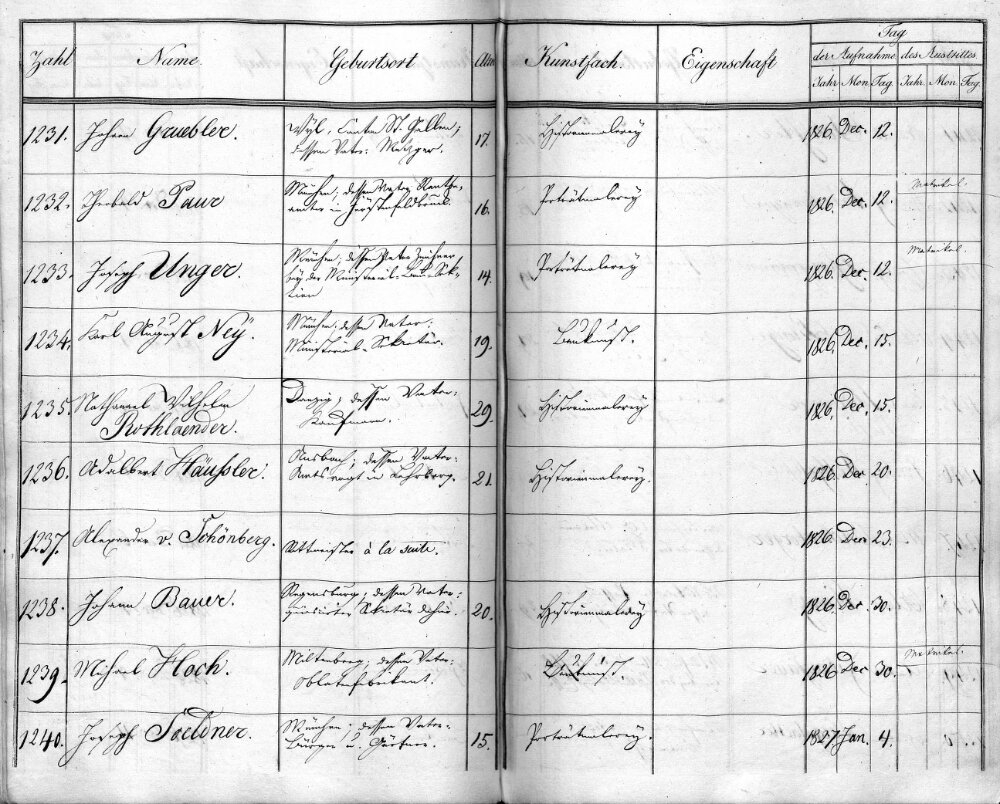 Zahl Name. Geburtsort Alter Kunstfach. Eigenschaft Tag
der Aufnahme des Austrittes
Jahr Mon Tag Jahr Mon Tag
1231. Johann Gruebler. Wyl, Canton St. Gallen; 17. Historienmalerey 1826. Dec. 12.
dessen Vater: Metzger.
1232. Theobald Paur München; dessen Vater Rent- 16. Porträtmalerey 1826. Dec. 12. Matrikel.
beamter in Fürstenfeldbruck.
1233. Joseph Unger. München; dessen Vater 14. Porträtmalerey 1826. Dec. 12. Matrikel.
1234. Karl August Neÿ. München; dessen Vater: 19. Baukunst. 1826. Dec. 15.
Ministerial-Sekretär.
1235. Nathanael Wilhelm Danzig; dessen Vater: 29. Historienmalerey 1826. Dec. 15.
Rothlaender. Kaufmann.
1236. Adalbert Häussler. Ansbach; dessen Vater: 21. Historienmalerey. 1826. Dec. 20.
in Lehrberg.
1237. Alexander v. Schönberg. Rittmeister à la suite. 1826. Dec. 23.
1238. Johann Bauer. Regensburg; dessen Vater: 20. Historienmalerey 1826. Dec. 30.
Sekretär
1239. Michael Hoch. Miltenberg; dessen Vater: Baukunst 1826. Dec. 30. Matrikel.
Oblatefabrikant.
1240. Joseph Soeldner. München; dessen Vater: 15. Porträtmalerey. 1827. Jan. 4.
Bürger u. Gärtner.